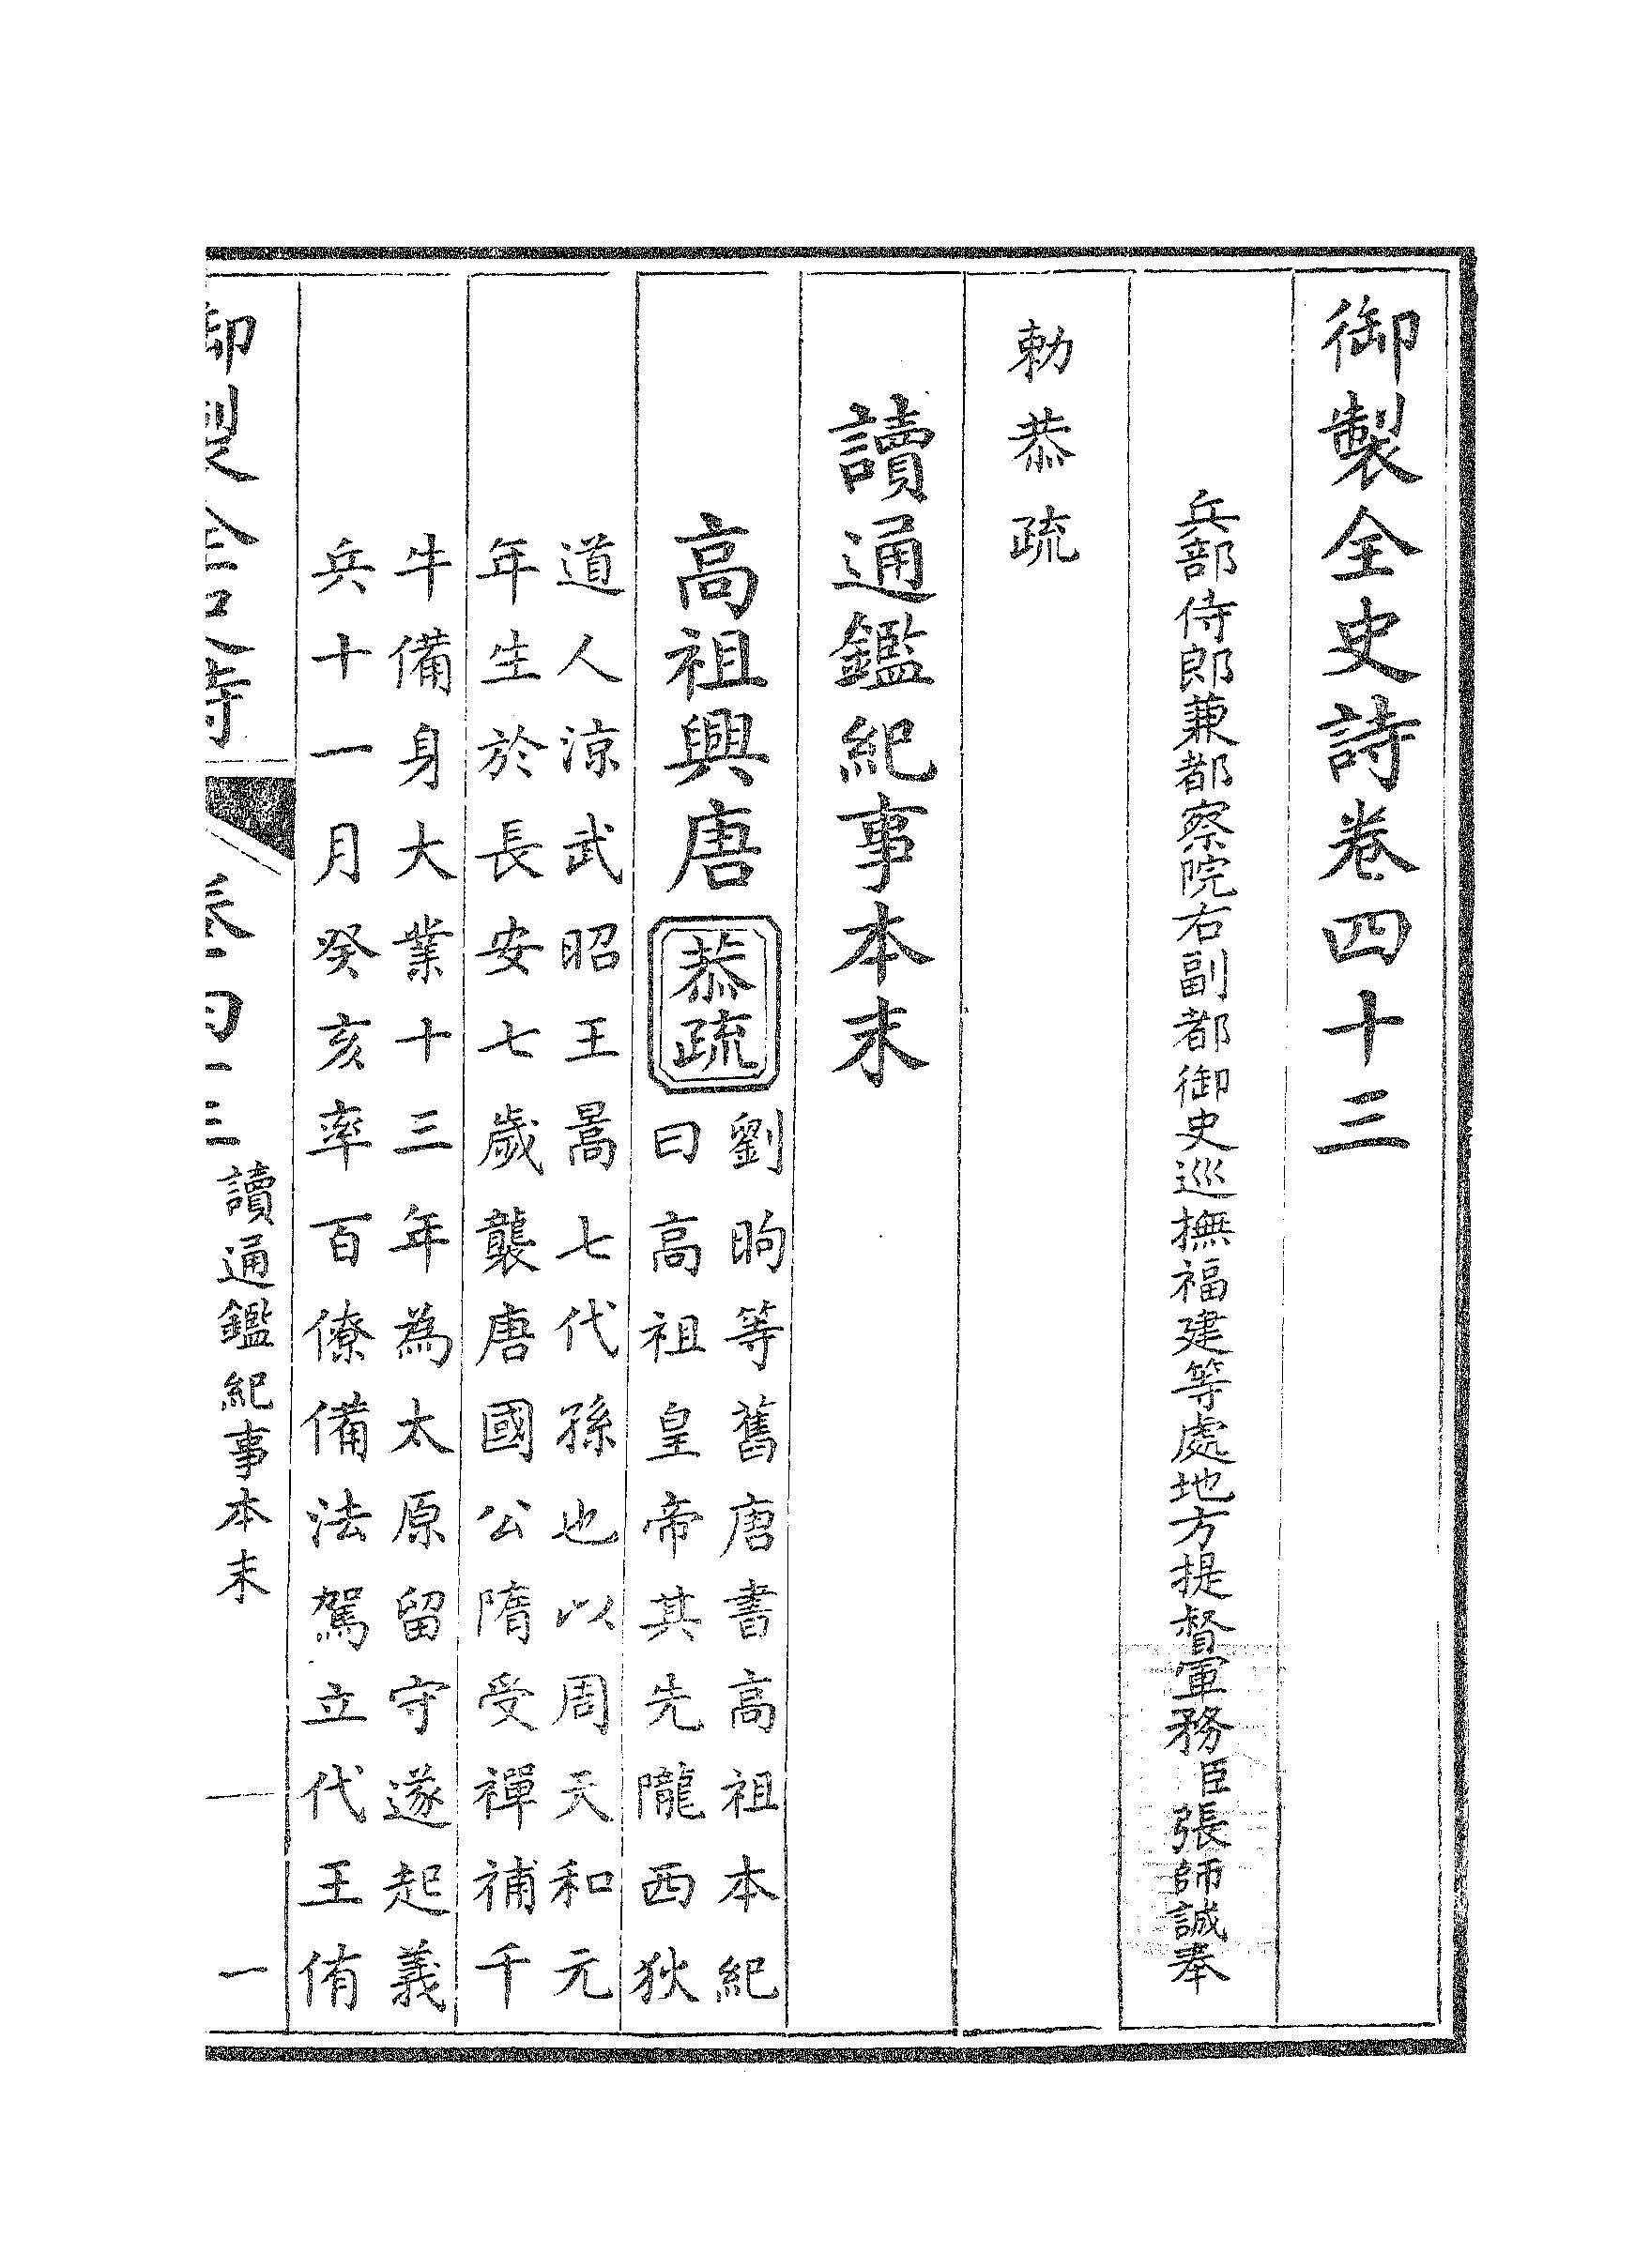 御製全史詩卷四十三
兵部侍郎兼都察院右副都御史巡撫福建等處地方提督軍務臣張師誠奉
勅恭疏
讀通鑑紀事本末
高祖興唐
恭疏
劉昫等舊唐書高祖本紀
曰高祖皇帝其先隴西狄
道人涼武昭王暠七代孫也以周天和元
年生於長安七歲襲唐國公隋受禪補千
牛備身大業十三年為太原留守遂起義
兵十一月癸亥率百僚備法駕立代王侑
御製全史詩 卷四十三 讀通鑑紀事本末 一